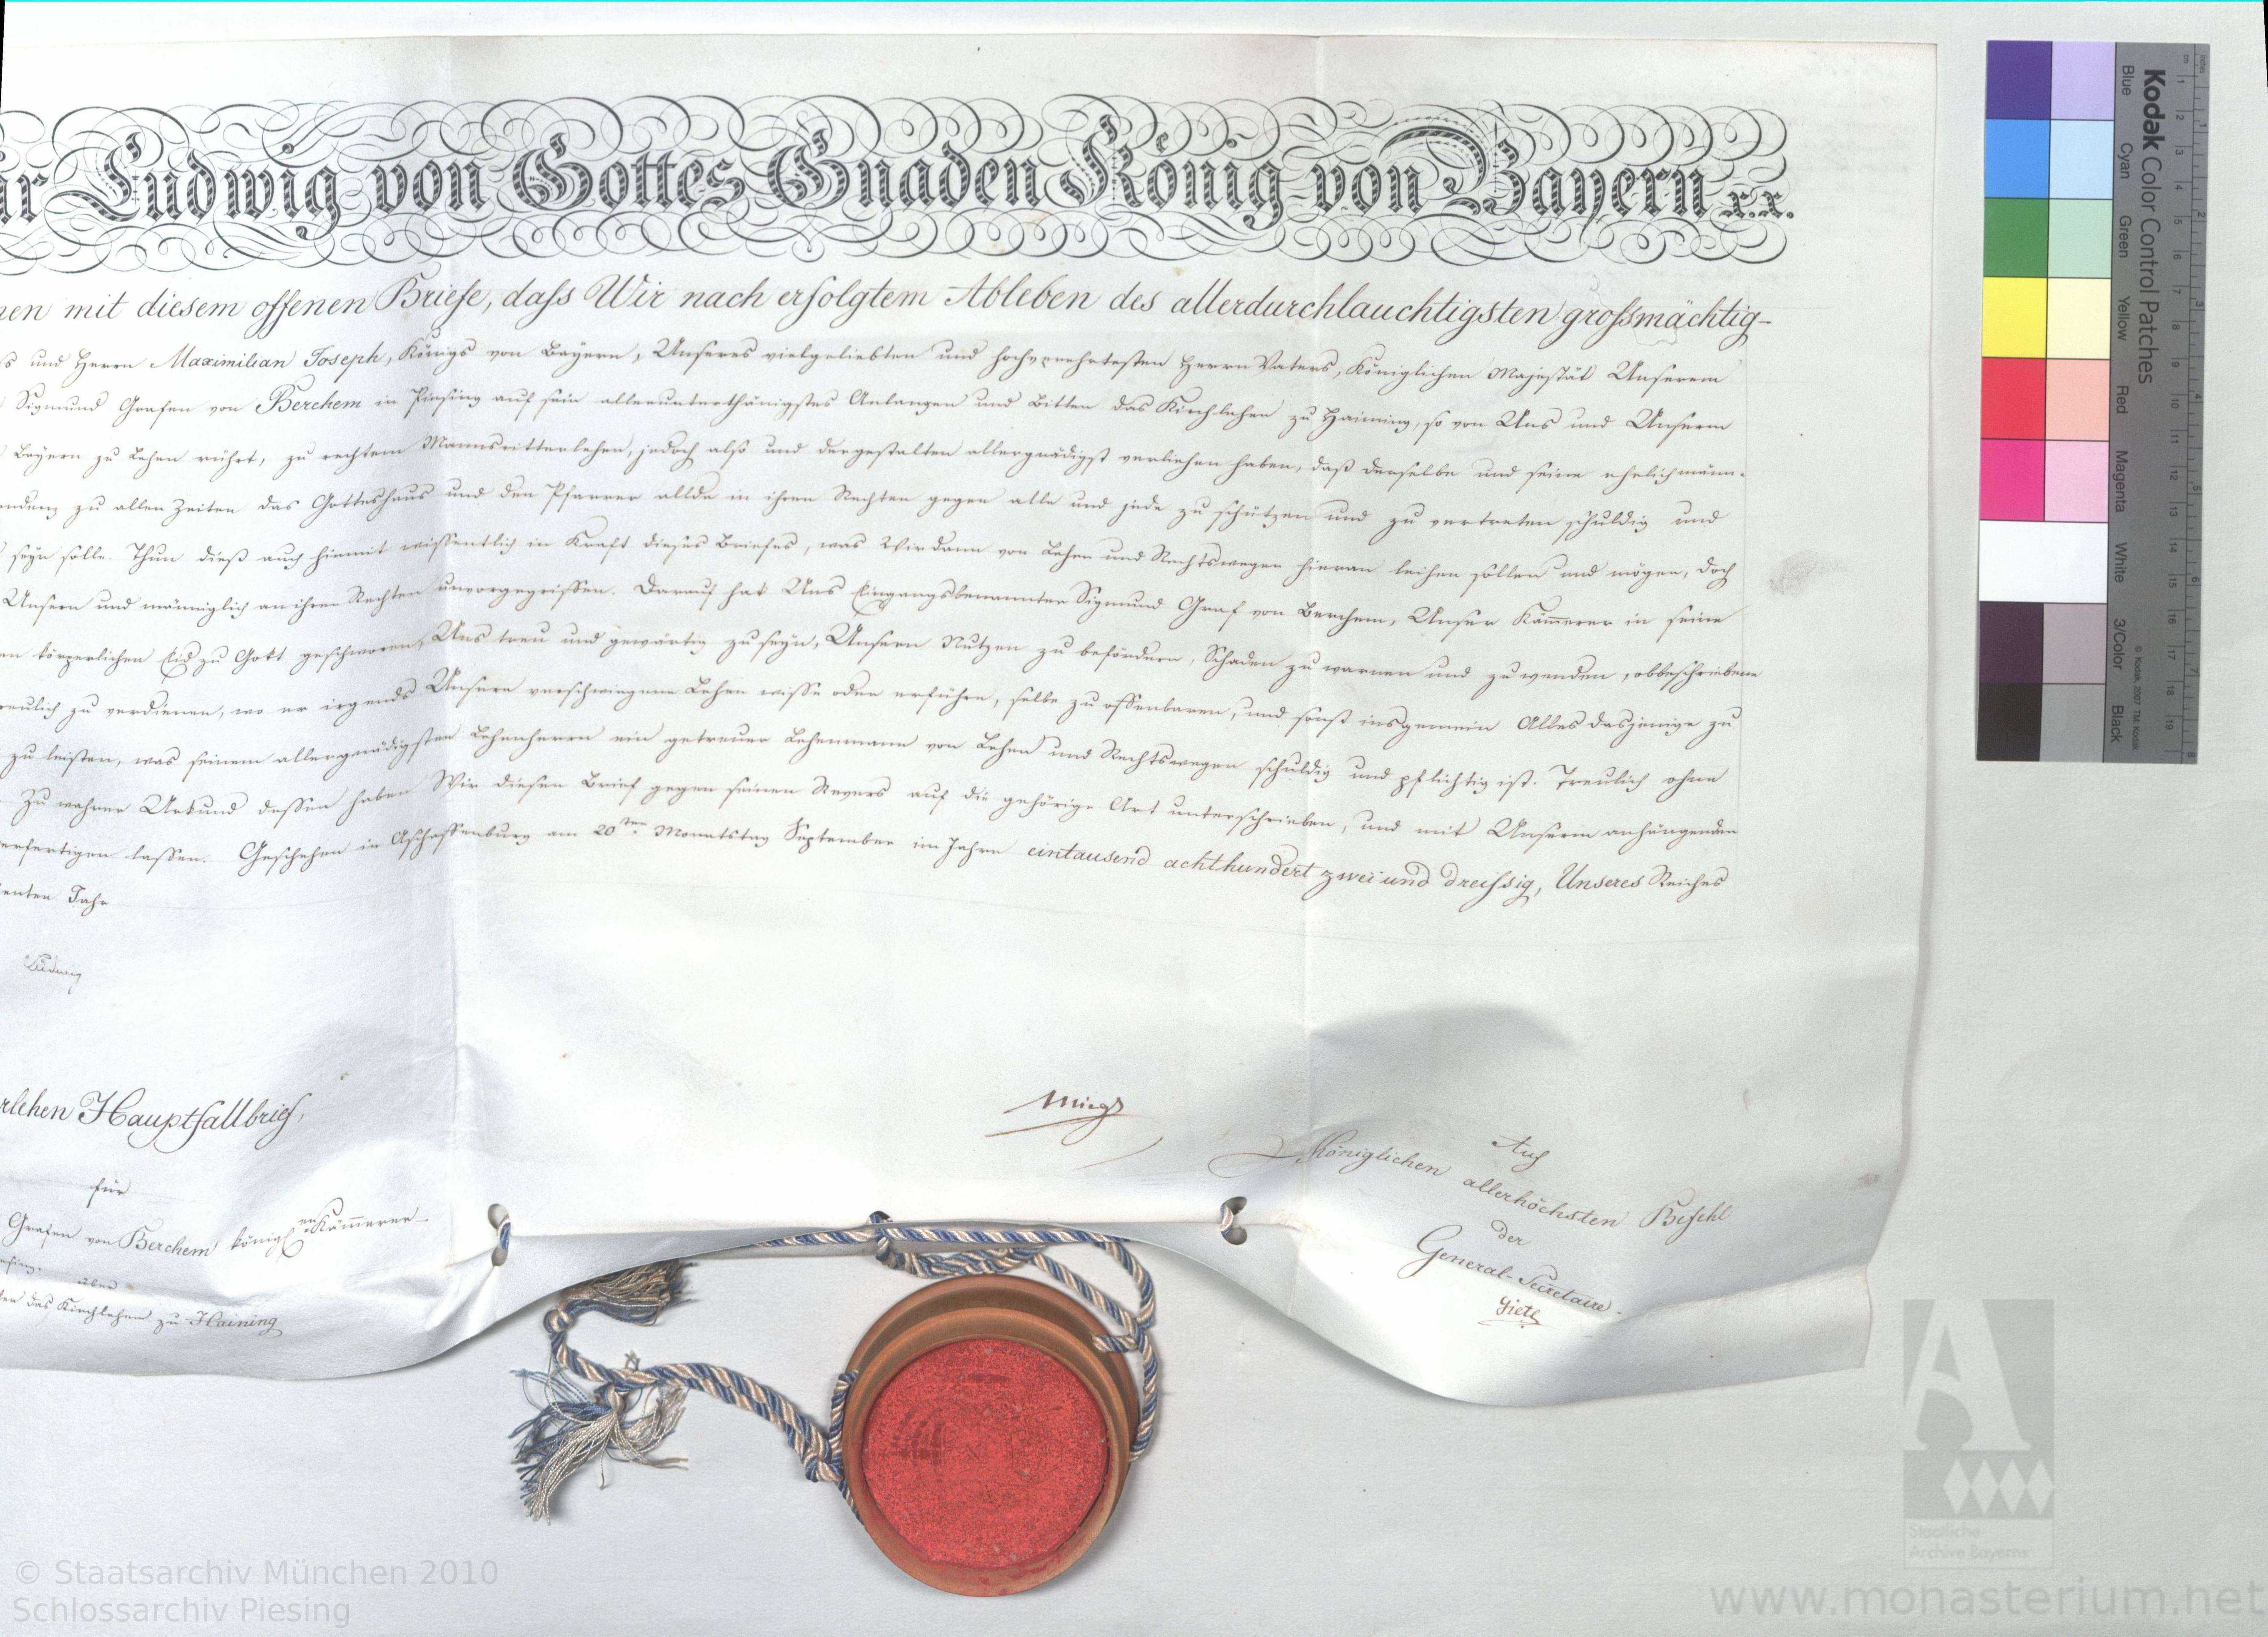 ir Ludwig von Gottes Gnaden König von Bayern x.x.
en mit diesem offenen Briefe, daſs Wir nach erfolgtem Ableben des allerdurchlauchtigsten groſsmächtig-
s und Herrn Maximilian Joseph, Königs von Bayern, Unseres vielgeliebten und hochverehrtesten Herrn Vaters, Königlichen Majestät Unserem
Sigmund Grafen von Berchem in Piesing auf sein allerunterthänigstes Anlangen und Bitten das Kirchlehen zu Haiming, so von Uns und Unserm
Bayern zu Lehen rührt, zu rechtem Mannsritterlehen, jedoch also und dergestalten allergnädigst verliehen haben, daß derselbe und seine ehelich männ-
zu allen Zeiten das Gotteshaus und den Pfarrer allda in ihren Rechten gegen alle und jede zu schützen und zu vertreten schuldig und
seyn solle. Thun dieß auch hiemit wissentlich in Kraft dieses Briefes, was Wir dann von Lehen und Rechtswegen hieran leihen sollen und mögen, doch
Unsern und männiglich an ihren Rechten unvorgegriffen. Darauf hat Uns Eingangsbenannter Sigmund Graf von Berchem, Unser Kämmerer in seine
en körperlichen Eid zu Gott geschworen, Uns treu und gewärtig zu seyn, Unsern Nutzen zu befördern, Schaden zu warnen und zu wenden, obbeschriebene
reulich zu verdienen, wo er irgends Unsere verschwiegene Lehen wisse oder erführe, selbe zu offenbaren, und sonst insgemein Alles dasjenige zu
zu leisten, was seinem allergnädigsten Lehenherrn ein getreuer Lehenmann von Lehen und Rechtswegen schuldig und pflichtig ist. Treulich ohne
Zu wahrer Urkund dessen haben Wir diesen Brief gegen seinen Revers auf die gehörige Art unterschrieben, und mit Unserm anhängenden
erfertigen lassen. Geschehen in Aschaffenburg am 20ten Monatstag September im Jahre eintausend achthundert zwei und dreiſsig, Unseres Reiches
enten Jahr
Ludwig
rlehen Hauptfallbrief,
für
Grafen von Berchem königlen Kämmerer
über
das Kirchlehen zu Haining
Mieg
Auf
Königlichen allerhöchsten Befehl
der
General-Secretaire.
Gietl
Kodak Color Control Patches
Blue Cyan Green Yellow Red Magenta White 3/Color Black
© Kodak, 2007 TM: Kodak
inches
cm
1 2 3 4 5 6 7 8
1 2 3 4 5 6 7 8 9 10 11 12 13 14 15 16 17 18 19
A
Staatliche
Archive Bayerns
© Staatsarchiv München 2010
Schlossarchiv Piesing
www.monasterium.net